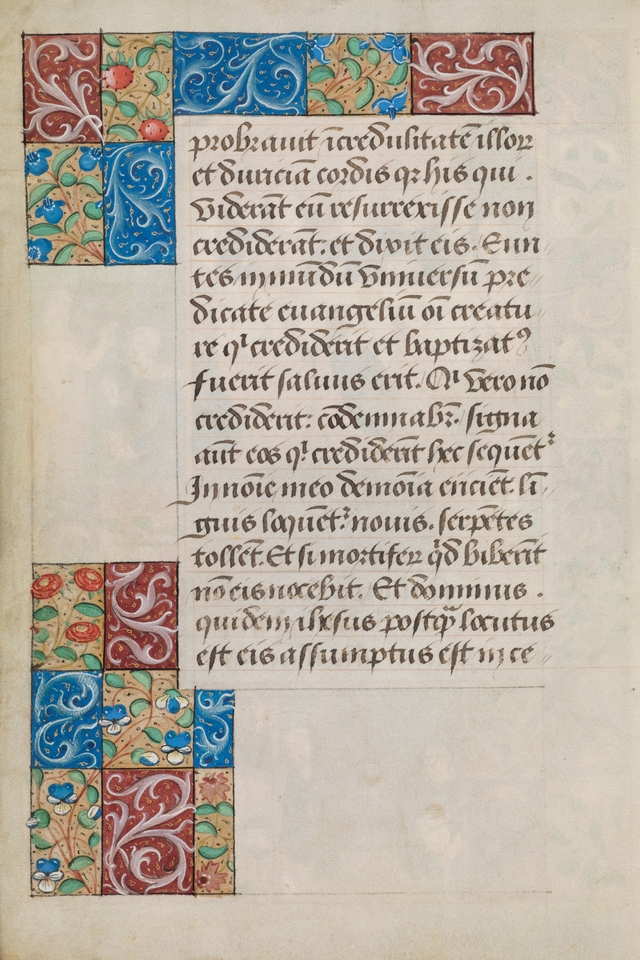 probrauit īcredulitatē illoꝝ
et duriciā cordis qꝛ his qui .
viderāt eū resurrexisse non
crediderāt: et dixit eis. Eun
tes mūndū vniuersū pre
dicate euangeliū oī creatu
re qͥ crediderit et baptizatꝰ
fuerit saluus erit. Qͥ vero nō
crediderit: cōdemnabr̄. signa
aūt eos qͥ crediderīt hec sequēt᷑
In noīe meo demoīa eiicient. lī
guis loquēt᷑ nouis. serpētes
tollēt. Et si mortiferū qͥd biberīt
nō eis nocebit. Et dominus .
quidem ihesus postqꝫ̄ locutus
est eis assumptus est in ce